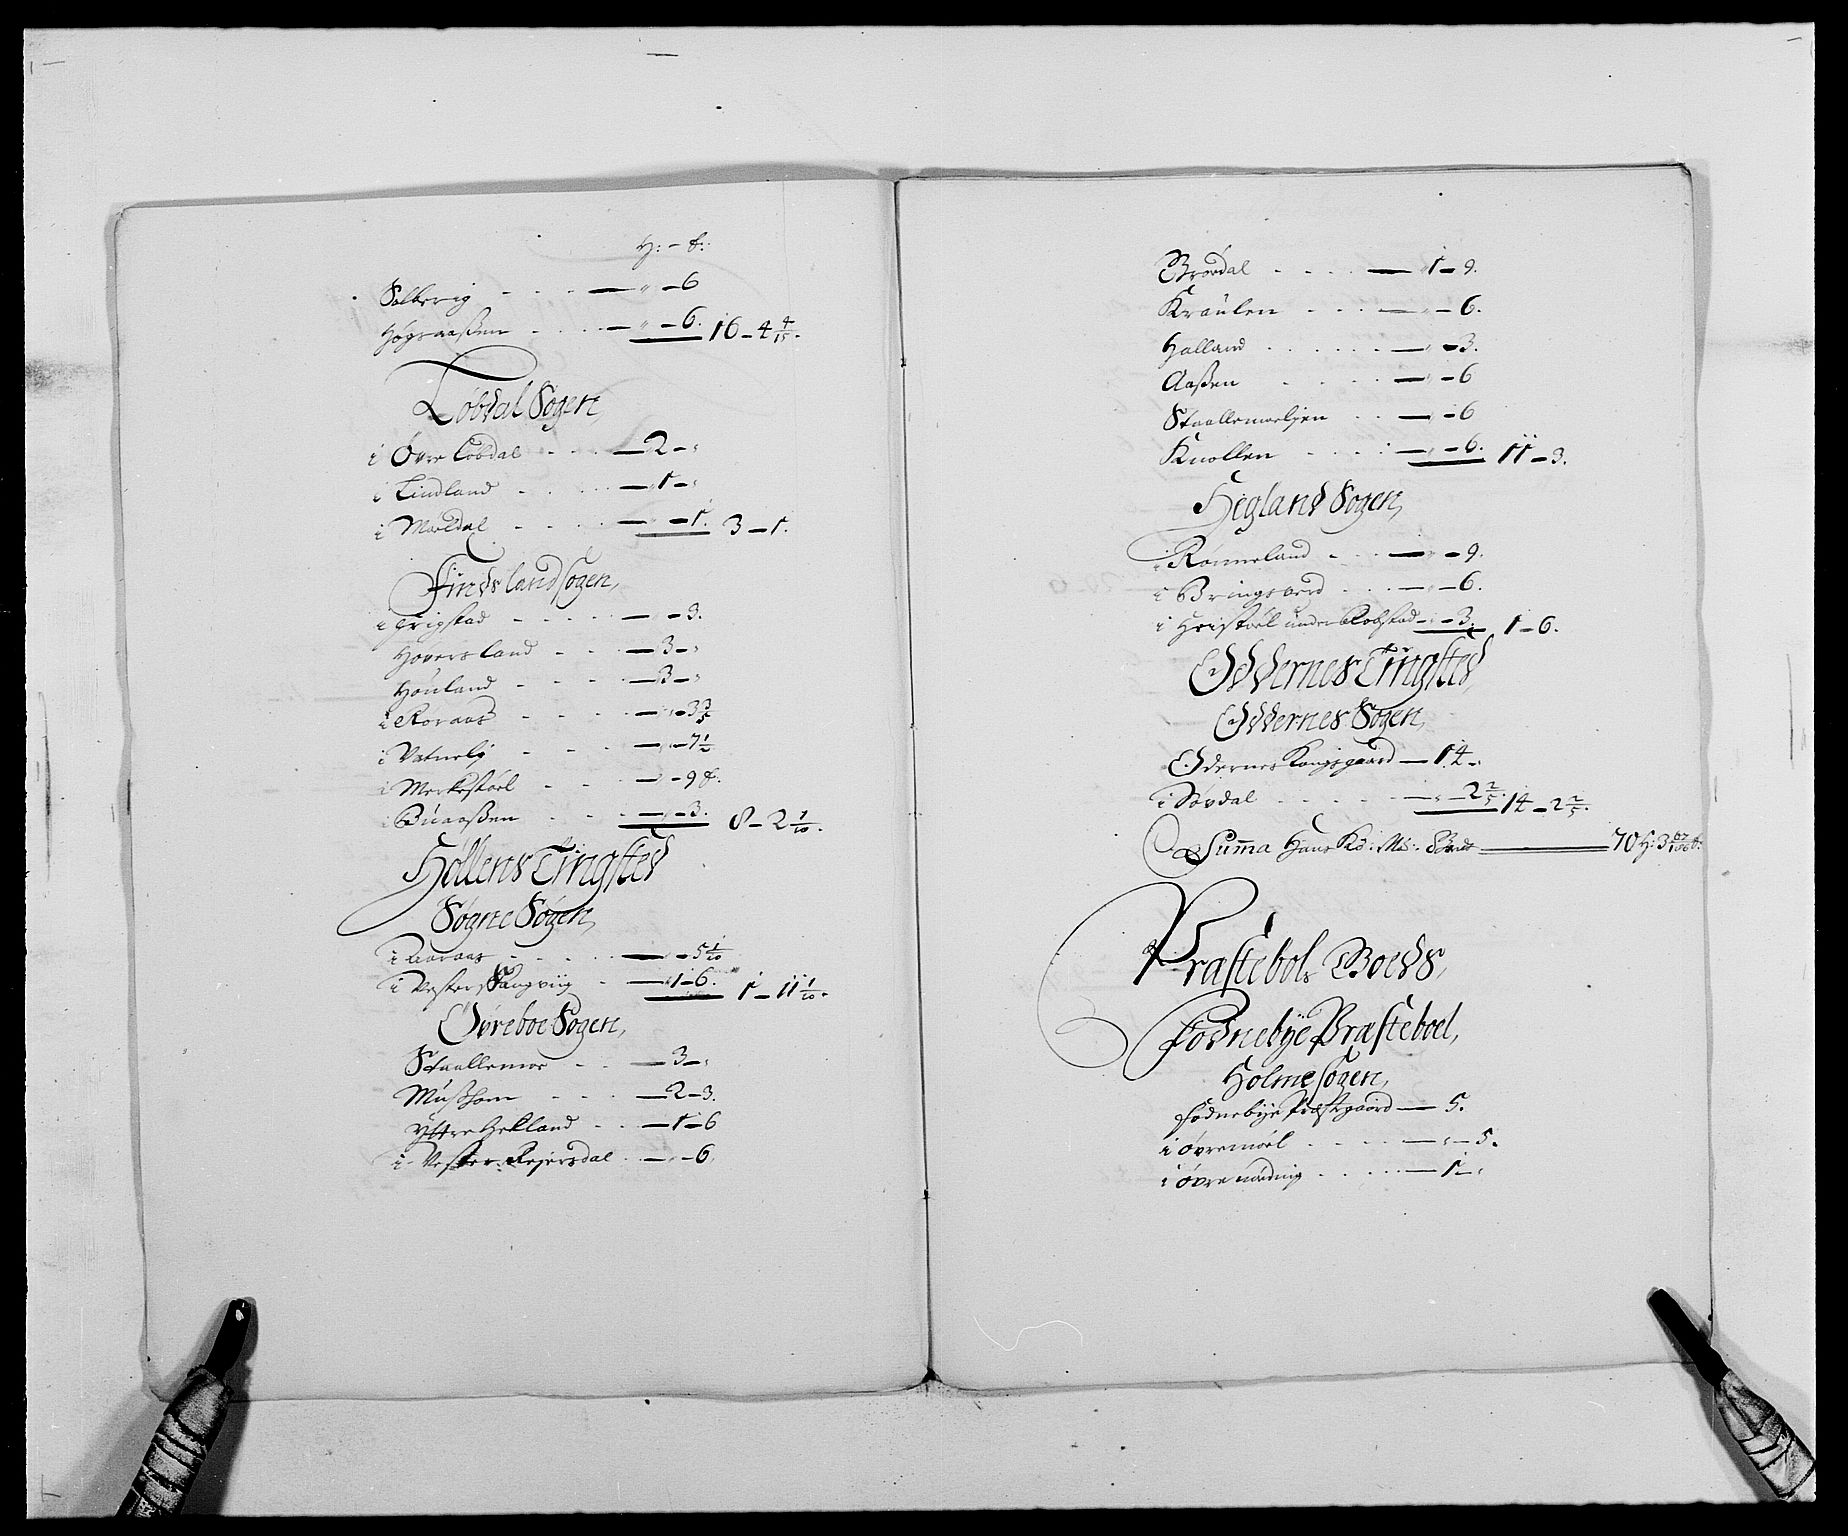 H: - ß:
Solberig - - - — „ — 6
Høgsaaßen - - - — „ — 6. 16 — 4 4/15.
Løbdal Sogen,
i Øvre Løbdal - - — 2 — „
i Lindland - - - — 1 — „
i Mæeldal - - - — „ — 1. 3 — 1.
Findsland sogen,
i Trigstad - - - - — „ — 3.
Hoversland - - - — 3 — „
Honland - - - — 3 — „
i Roraas - - - — „ — 3 3/5
i Vatneli - - - — „ — 7 1/2
i Merkestøel - - — „ — 9 ß.
i Buaaßen - - - — „ — 3. 8 — 2 1/10.
Hollens Tingsted
Søgne Sogen,
i Aaraas - - - — „ — 5 1/10
i Vester Vangviig - — 1 — 6. 1 — 11 1/10.
Øvreboe Sogen,
Staallemoe - - — 3 — „
Mußhom - - - — 2 — 3.
Yttre Hekland - - — 1 — 6
i Vester Reiersdal - — „ — 6
Brøvdal - - - — 1 — 9.
Kraulen - - - — „ — 6.
Holland - - - — „ — 3.
Aaßen - - - — „ — 6
Staallemoeljen - - — „ — 6
Knollen - - - — „ — 6. 11 — 3.
Hegland Sogen,
i Ronneland - - - — „ — 9.
i Bringsverd - - - — „ — 6.
i Hristøel under Robstad — „ — 3. 1 — 6.
Oddernes Tingsted,
Oddernes Sogen,
Odernes Kongsgaard — 14 — „
i Søvdal - - - — „ — 2 2/5. 14 — 2 2/5.
Summa Hans Ko: Ma: Goeds — 70 H: 3 67/100 ß.
Præstebols Goeds,
Fodnebye Præsteboel,
Holme sogen,
Fodnebye Præstgaard — 5.
i Øvremoel - - - — „ — 5.
i Øvre nøding - - - — 1 — „